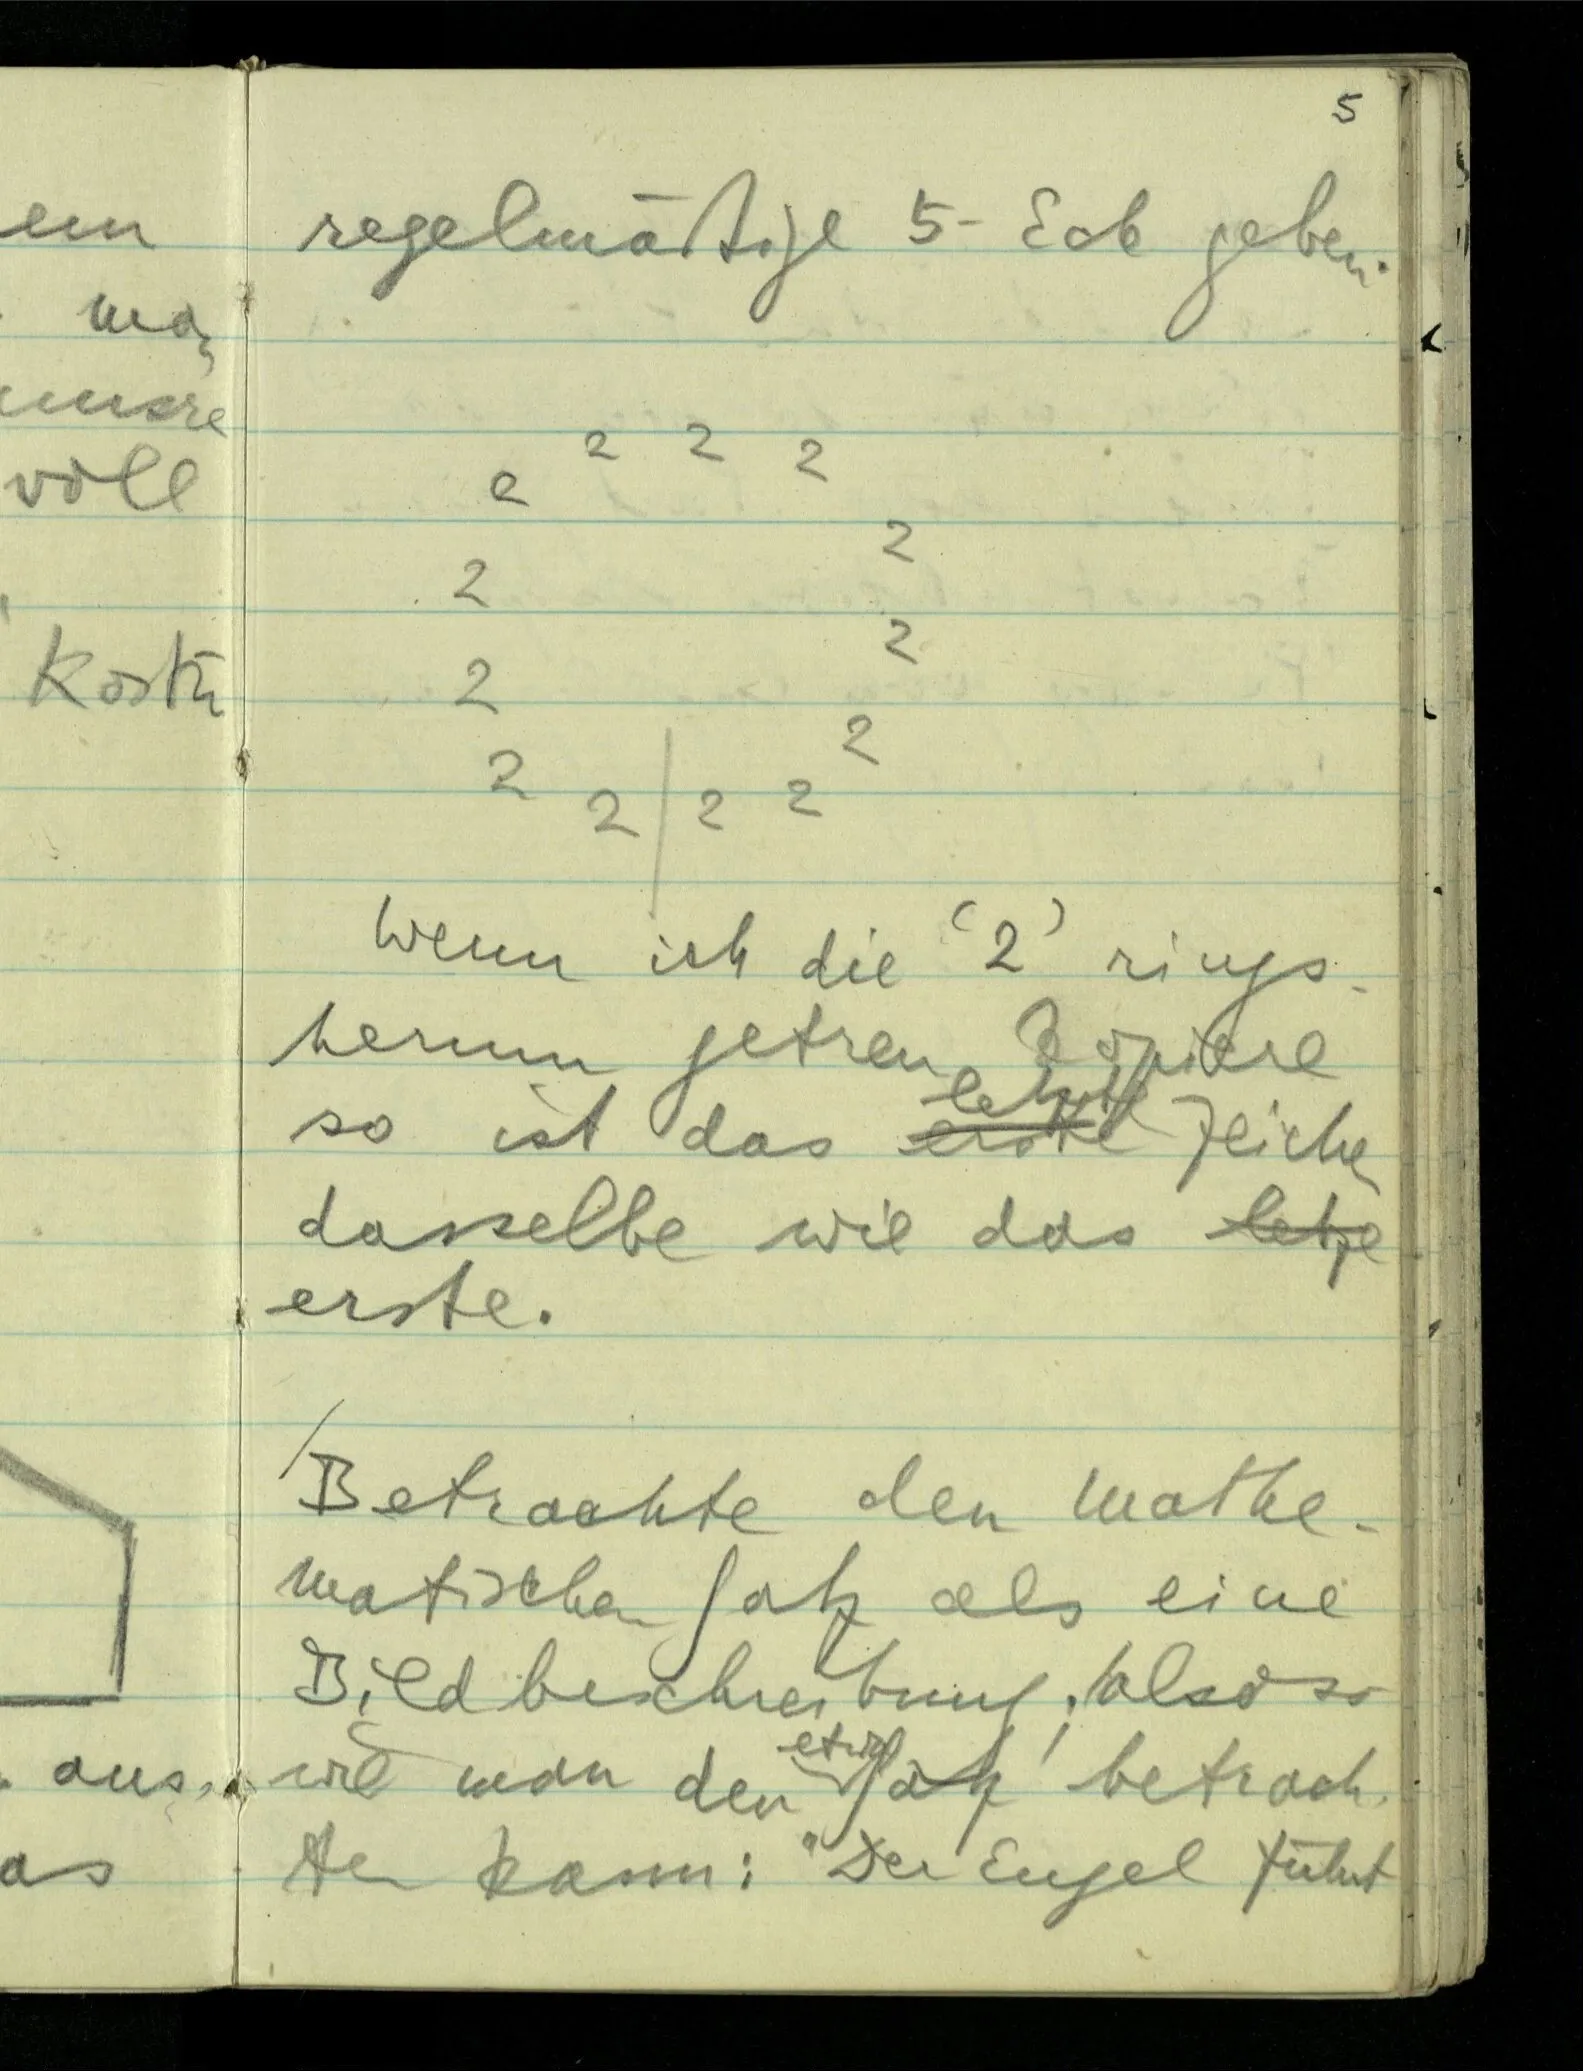 5
regelmäßige 5-Eck geben.
2 2 2
2
2
2
2
2
2
2
2 2 | 2 2
Wenn ich die '2' rings-
herum getreu kopiere
so ist das erste letzte Zeichen
dasselbe wie das letzte
erste.
/ Betrachte den mathe-
matischen Satz als eine
Bildbeschreibung; also so
wie man den etwa Satz betrach-
ten kann: "Der Engel führt
man
unsre
voll
Kosten
aus,
as